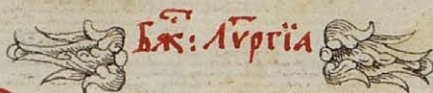 Бж҃: Лѵ҃ргїа